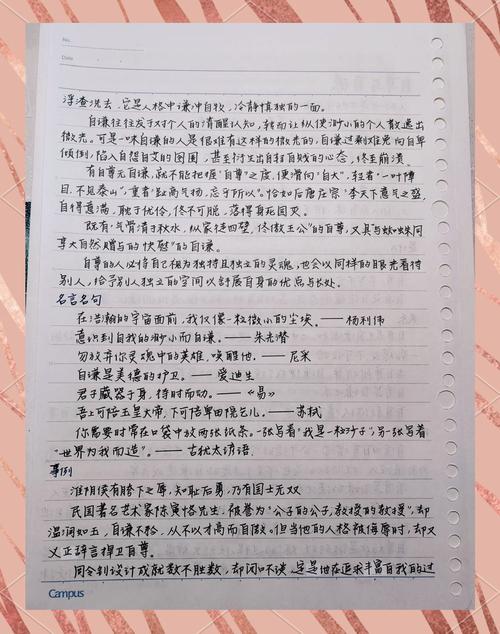 No.
Date
浮渣洗去，它是人格中谦冲自牧，冷静慎独的一面。
自谦往往发于对个人的清醒认知，转而让纵使渺小的个人散逸出
微光。可是一味自谦的人是很难有这样的微光的，自谦过剩难免向自卑
倾倒，陷入自怨自艾的囹圄，甚至衍生出自轻自贱的心态，终至崩溃。
有自尊无自谦，就不能把握"自尊"之度，便滑向"自大"，轻者"一叶障
目，不见泰山"，重者"趾高气扬，忘乎所以"。恰如后唐庄宗"李天下意气之盛，
自得意满，耽于优伶，终不可脱，落得身死国灭。
既有"气骨清于秋水，纵家徒四壁，终傲王公"的自尊，又具"与蚊蛛同
享大自然赠与的快慰"的自谦。
自尊的人必将自己视为独特且独立的灵魂，也会以同样的眼光看待
别人，给予别人独立的空间以舒展自身的优点与长处。
名言名句
在浩瀚的宇宙面前，我仅像一粒微小的尘埃。——杨利伟
意识到自我的渺小而自谦。——朱光潜
勿放弃你灵魂中的英雄，唤醒他。——尼采
自谦是美德的护卫。——爱迪生
君子藏器于身，待时而动。——《易》
吾上可陪玉皇大帝，下可陪卑田院乞儿。——苏轼
你需要时常在口袋中放两张纸条。一张写着"我是一粒沙子"；另一张写着
"世界为我而造"。——古犹太谚语.
事例
淮阴侯有胯下之辱，知耻后勇，乃有国士无双
民国著名艺术家陈寅恪先生，被誉为"公子的公子，教授的教授"，却
温润如玉，自谦不矜，从不以才高而自傲。但当他的人格被侮辱时，却又
义正辞言捍卫自尊。
周令钊设计成就数不胜数，却闭口不谈，定是他在追求丰富自我的过
Campus